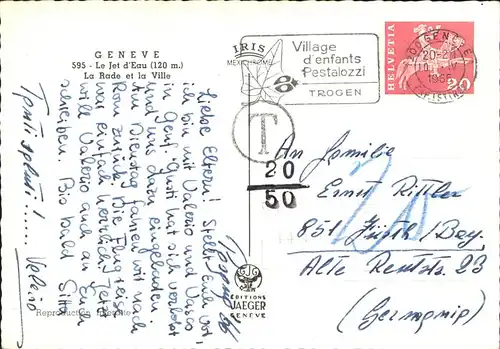 GENEVE
595 - Le Jet d'Eau (120 m.)
La Rade et la Ville
Liebe Eltern! Stellt Euch vor,
ich bin mit Valerio und Vasco
in Genf. Gusti hat sich verlobt
und uns dazu eingeladen
Am Dienstag fahren wir nach
Rom zurück. Die Flugreise
war einfach herrlich! Jetzt
will Valerio auch an Euch
schreiben. Bis bald
Tanti saluti!....
Valerio
Reproduction interdite
EDITIONS
JAEGER
GENEVE
IRIS
Village
d'enfants
Pestalozzi
TROGEN
20-2
1966
HELVETIA
20
T
20
50
An Familie
Ernst Rittler
851 Fürth/Bay.
Alte Reutstr. 23
(Germania)